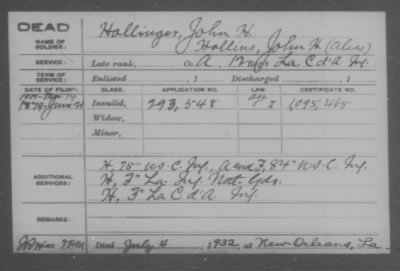 DEAD
NAME OF SOLDIER:
Hollinger, John H.
Hollins, John H. (Alias)
SERVICE: Late rank, Co. A, La. C d'A Inf.
TERM OF SERVICE: Enlisted , 1 Discharged , 1
DATE OF FILING. CLASS. APPLICATION NO. LAW. CERTIFICATE NO.
1879-June 21 Invalid, 293,548 1,095,468
Widow,
Minor,
ADDITIONAL SERVICES:
H, 75" U S C. Inf., A and F, 84" U S. C. Inf.
H, 3" La. Inf. Nat. Gds.
H, 3" La C d'A. Inf.
REMARKS:
Died July 4 , 1932, at New Orleans, La.